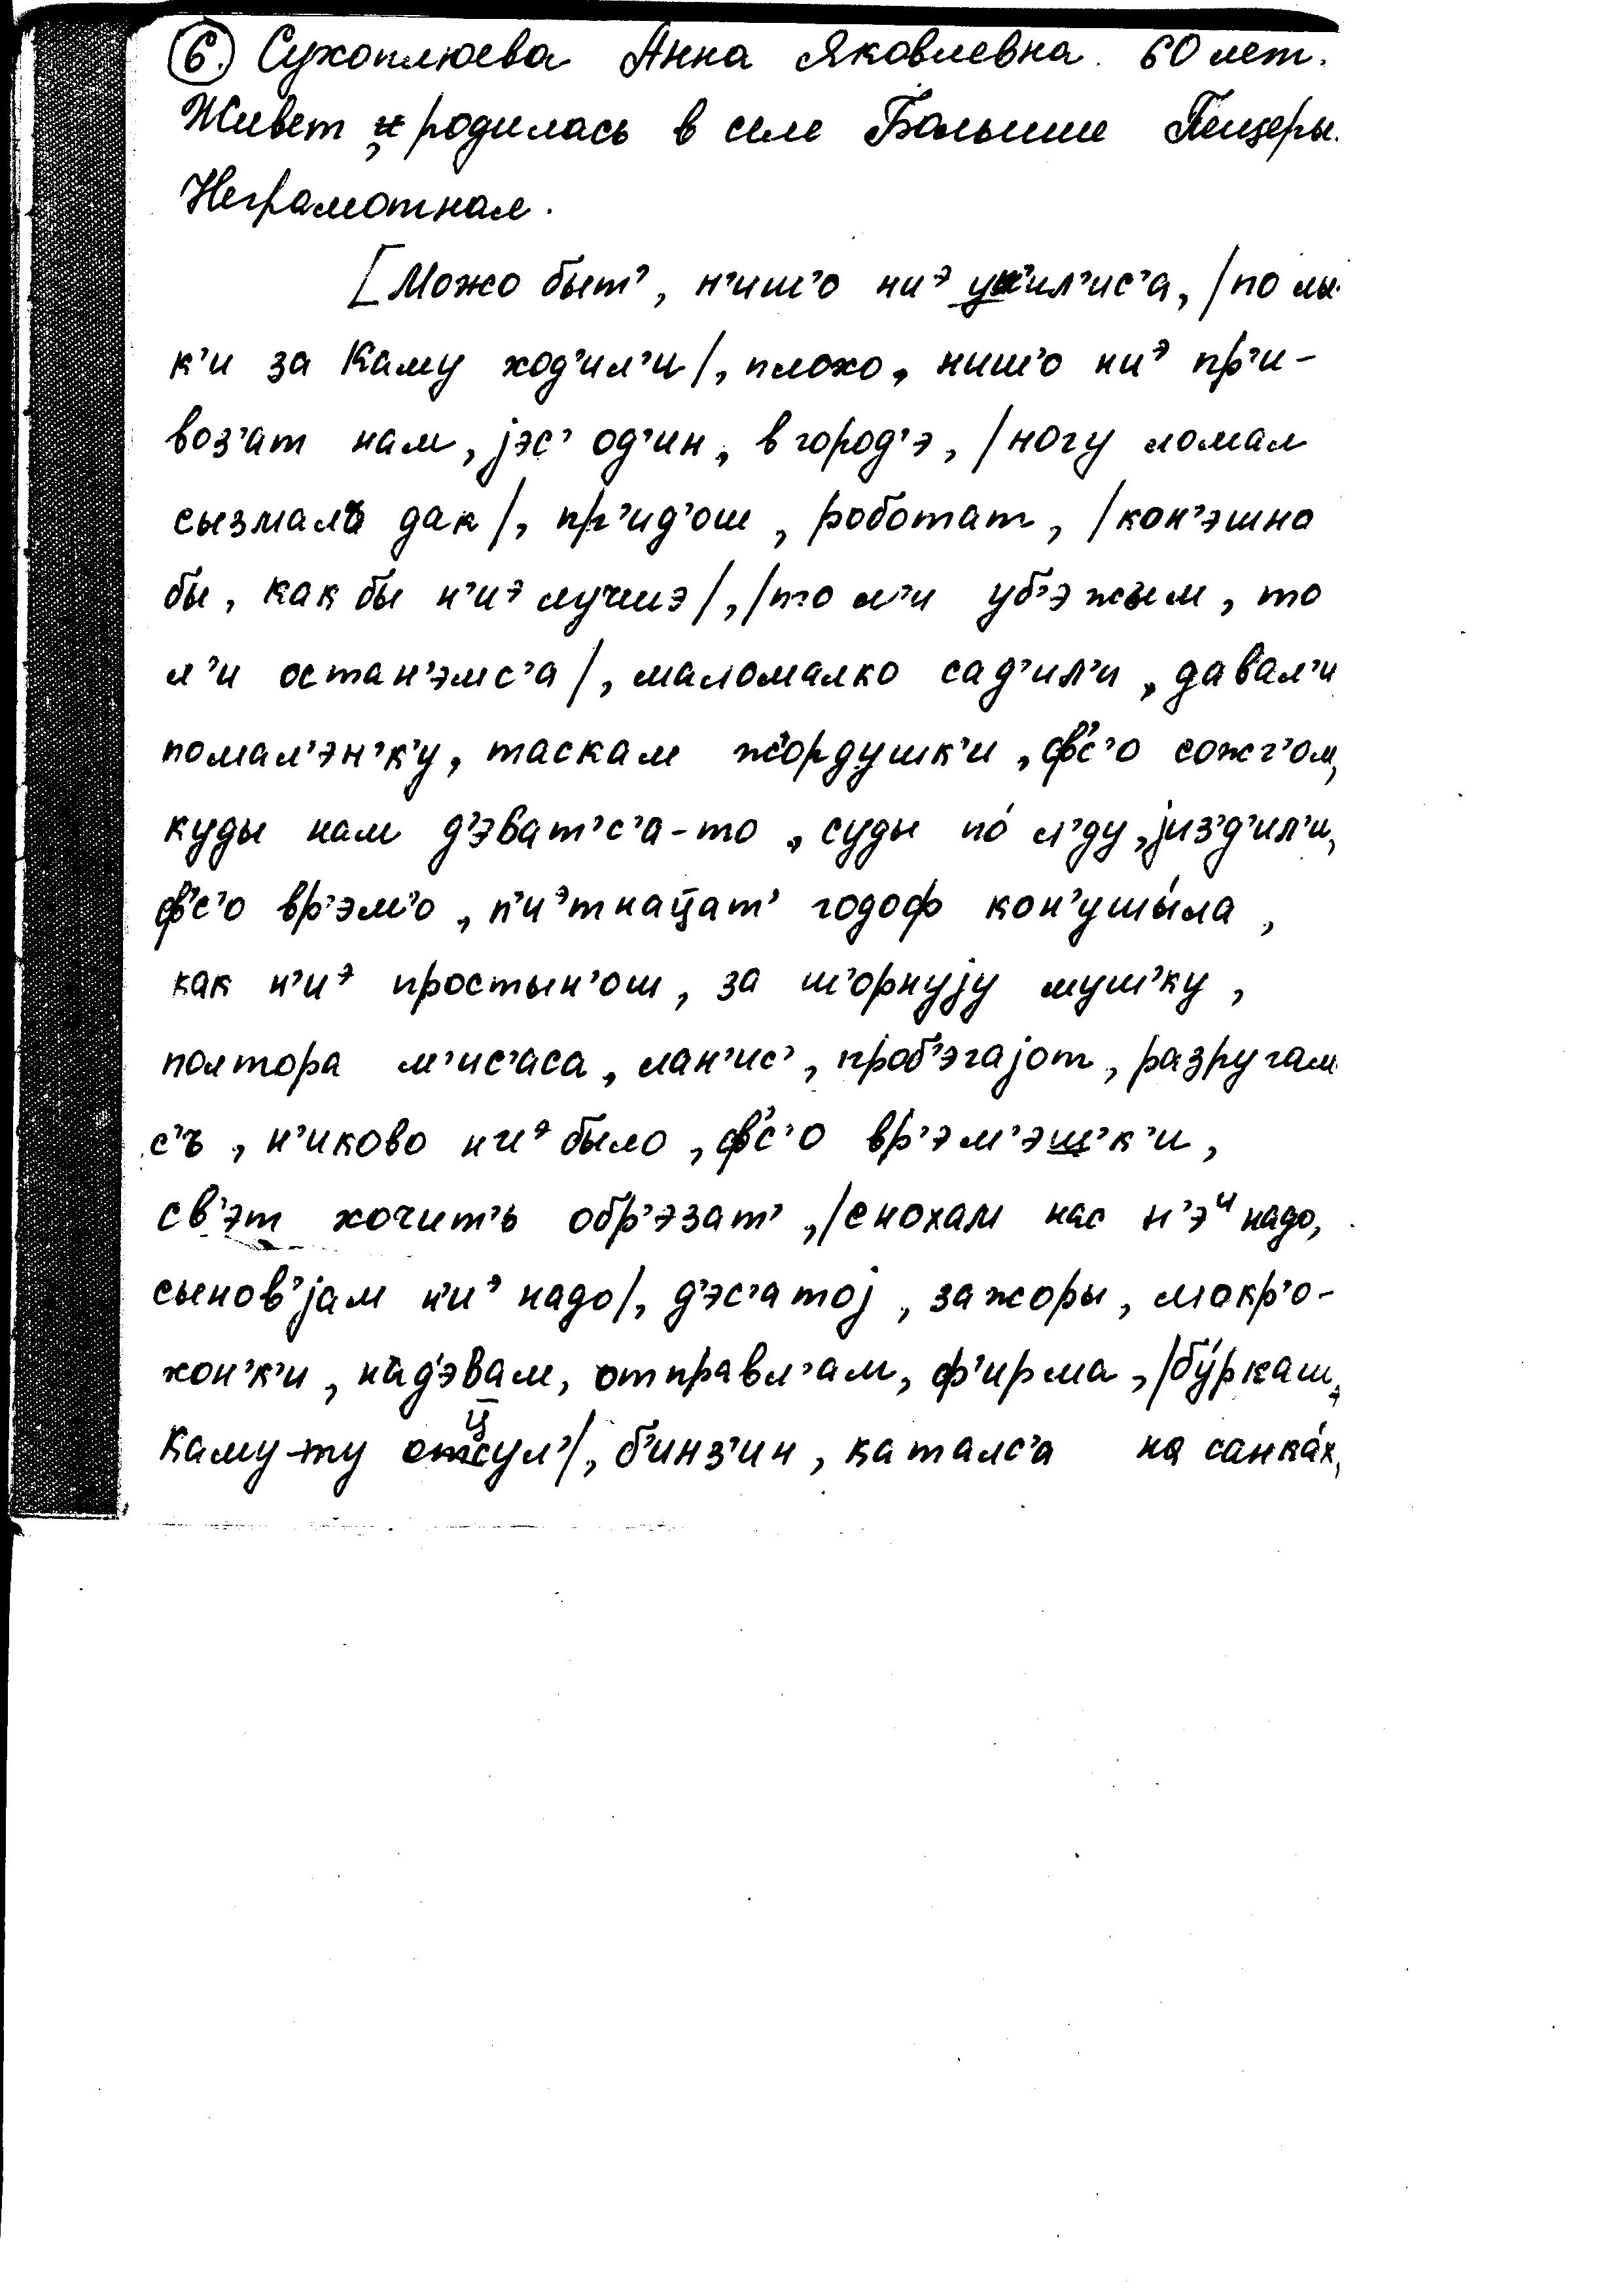 6. Сухоплюева Анна Яковлевна. 60 лет.
Живет и родилась в селе Большие Пещеры.
Неграмотная.
[Можо быт’, н’иш’о ниэ уш’ил’ис’а, /по лы-
к’и за Каму ход’ил’и/, плохо, ниш’о ниэ пр’и-
воз’ат нам, jэс’ од’ин, в город’э, /ногу ломал
сызмала дак/, пр’ид’ош, роботат, /кон’эшно
бы, как бы н’иэ лучшэ/, /то л’и уб’эжым, то
л’и остан’эмс’а/, маломалко сад’ил’и, давал’и
помал’эн’к’у, таскам жордушк’и, ф’с’о сожг’ом,
куды нам д’эват’с’а-то, суды по́ л’ду, jиз’д’ил’и,
ф’с’о вр’эм’о, п’иэтнац̄ат’ годоф кон’ушы́ла,
как н’иэ простын’ош, за ш’орнуjу муш’ку,
полтора м’ис’аса, лан’ис’, проб’эгаjот, разругам
с’ъ, н’иково ниэ было, ф’с’о вр’эм’эш’к’и,
св’эт хочит’ь обр’эзат’, /снохам нас н’эи надо,
сынов’jам н’иэ надо/, д’эс’атоj, зажоры, мокр’о-
хон’к’и, над’эвам, отправл’ам, ф’ирма, /бу́ркаш,
Каму-ту отсул’/, б’инз’ин, каталс’а на санка́х,
ц̄